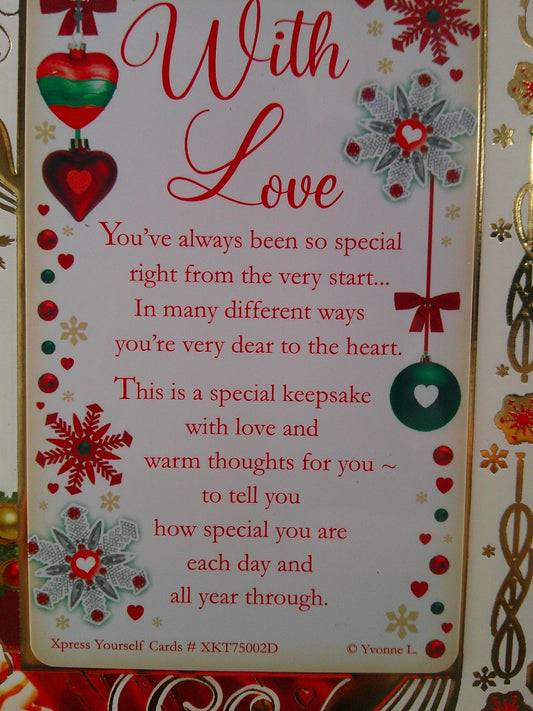 With
Love
You've always been so special
right from the very start...
In many different ways
you're very dear to the heart.
This is a special keepsake
with love and
warm thoughts for you ~
to tell you
how special you are
each day and
all year through.
Xpress Yourself Cards # XKT75002D © Yvonne L.